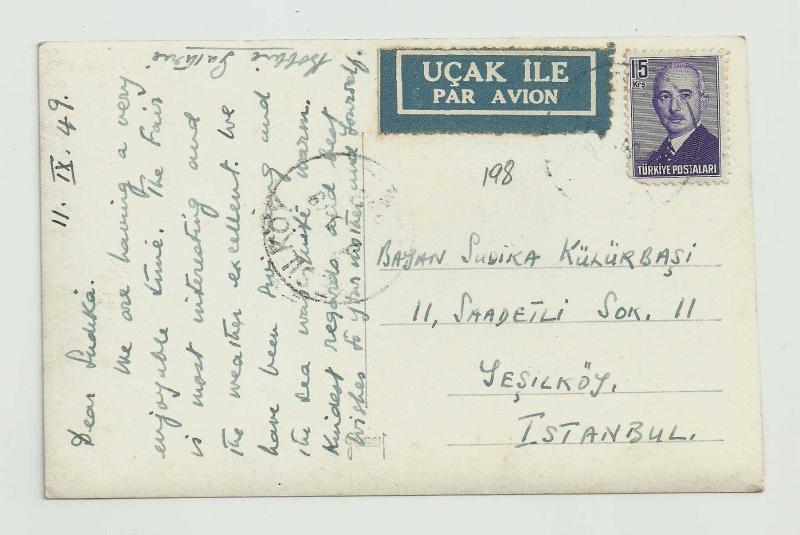 11. IX. 49.
Dear Sudika.
We are having a very
enjoyable time. The Fair
is most interesting and
the weather excellent. We
have been swimming and
the sea was quite warm.
Kindest regards and best
wishes to your mother and yourself.
UÇAK İLE
PAR AVION
15
Krş
TÜRKİYE POSTALARI
198
SİLKÖY
BAYAN SUDİKA KÜLÜRBAŞİ
11, SAADETLİ SOK. 11
YEŞİLKÖY.
İSTANBUL.